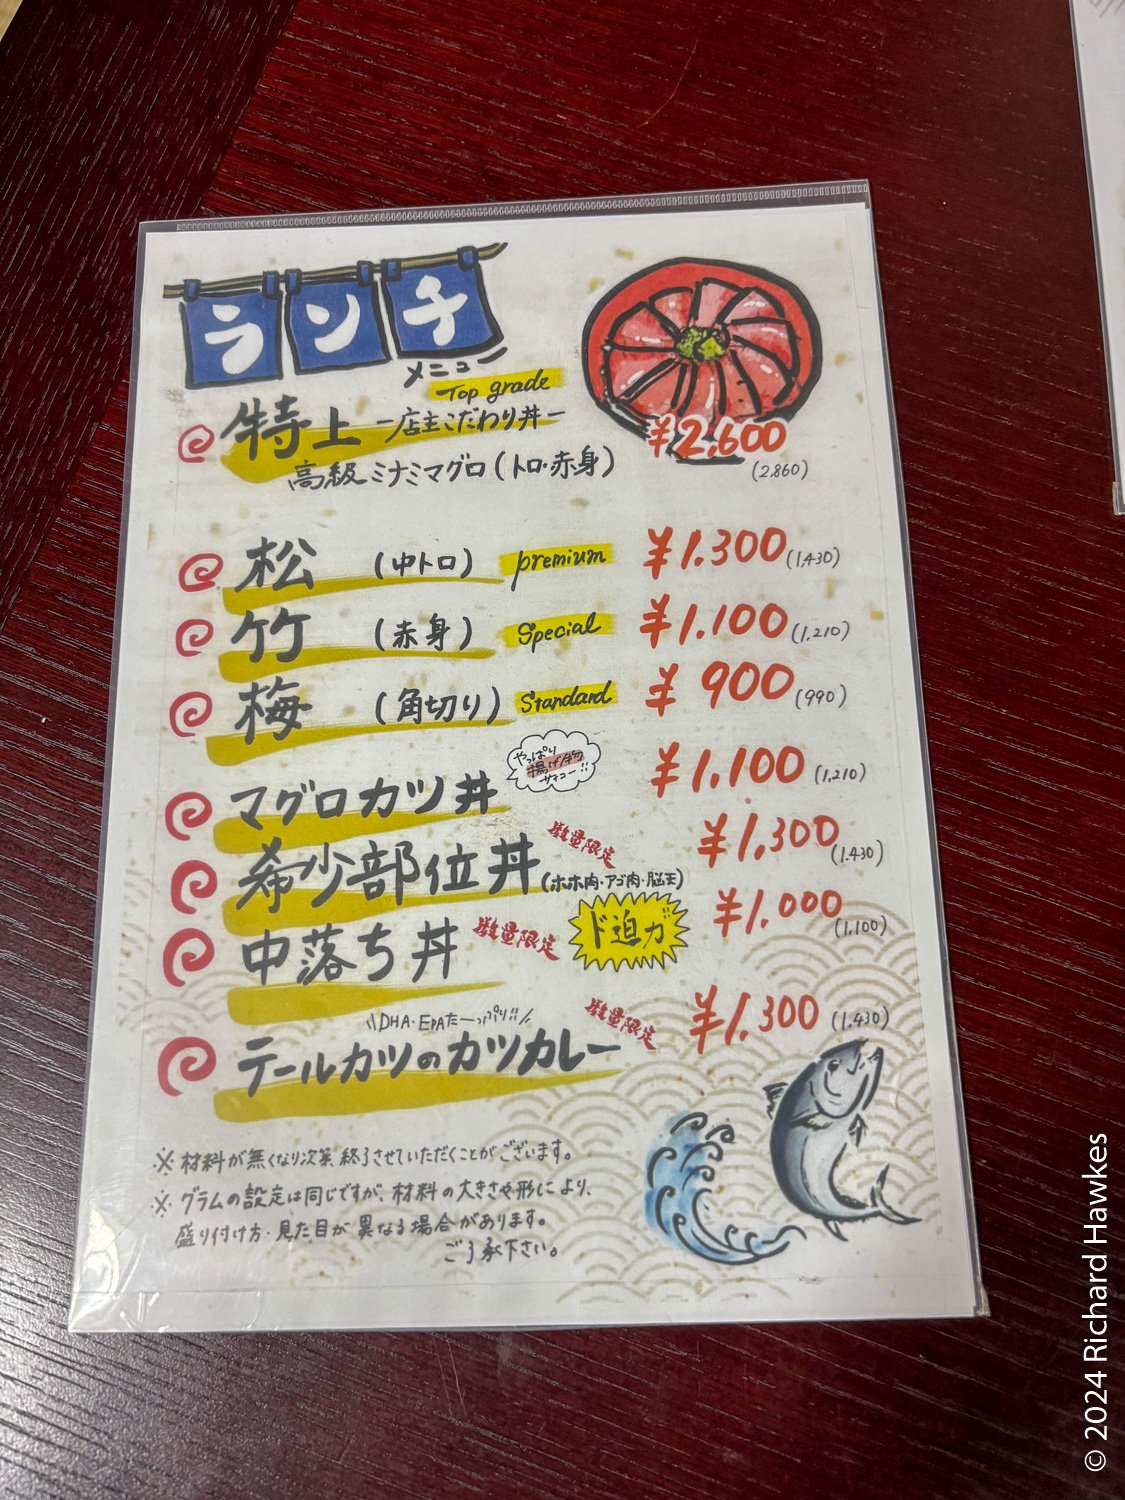 ランチ
メニュー
Top grade
特上 ー店主こだわり丼ー ¥2,600
高級ミナミマグロ(トロ・赤身) (2860)
松 (中トロ) premium ¥1.300 (1,430)
竹 (赤身) Special ¥1.100 (1,210)
梅 (角切り) Standard ¥900 (990)
やっぱり
揚げ物
サイコー!!
マグロカツ丼 ¥1.100 (1,210)
数量限定
希少部位丼 (ホホ肉・アゴ肉・脳天) ¥1,300 (1.430)
中落ち丼 数量限定 ド迫力 ¥1.000 (1.100)
\\DHA・EPAたーっぷり!!//
数量限定
テールカツのカツカレー ¥1.300 (1,430)
※ 材料が無くなり次第終了させていただくことがございます。
※ グラムの設定は同じですが、材料の大きさや形により、
盛り付け方・見た目が異なる場合があります。
ご了承下さい。
© 2024 Richard Hawkes